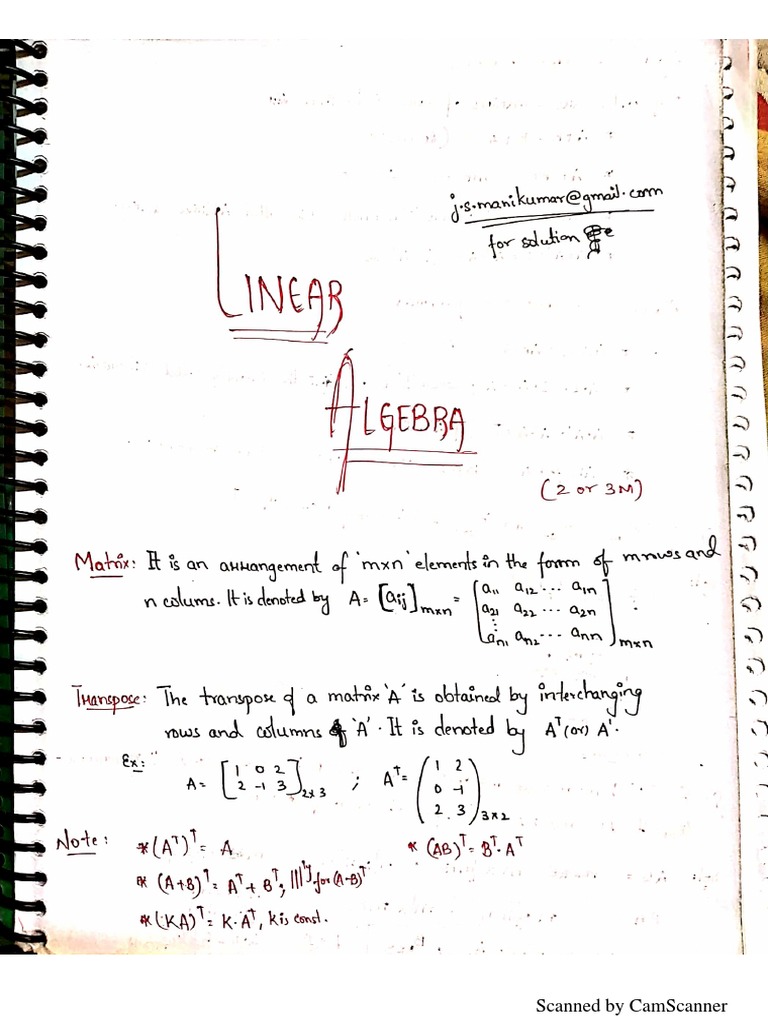 j.s.manikumar@gmail.com
for solution
LINEAR
ALGEBRA
(2 or 3M)
Matrix: It is an arrangement of 'm×n' elements in the form of m rows and
n colums. It is denoted by A = [aij]m×n = [a11 a12 ... a1n
a21 a22 ... a2n
⋮
an1 an2 ... ann]m×n
Transpose: The transpose of a matrix 'A' is obtained by interchanging
rows and columns of 'A'. It is denoted by A^T (or) A'.
Ex: A = [1 0 2
2 -1 3]2×3 ; A^T = (1 2
0 -1
2 3)3×2
Note: *(A^T)^T = A * (AB)^T = B^T. A^T
* (A+B)^T = A^T + B^T, |||ly for (A-B)^T
* (KA)^T = K. A^T, K is const.
Scanned by CamScanner